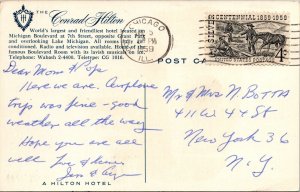 THE Conrad Hilton
World's largest and friendliest hotel located on
Michigan Boulevard at 7th Street, opposite Grant Park
and overlooking Lake Michigan. All rooms fully air
conditioned. Radio and television available. Home of the
famous Boulevard Room with its lavish musicals on ice.
Telephone: Wabash 2-4400. Teletype: CG 1018.
CHICAGO
ILL.
CENTENNIAL 1859-1959
UNITED STATES
4¢
POST CA
Dear Mom & Pop
Here we are. Airplane
trip was fine - good
weather all the way
Hope you are all
well
Love & kisses
Mr & Mrs N Botta
411 W 44 St
New York 36
N.Y.
A HILTON HOTEL